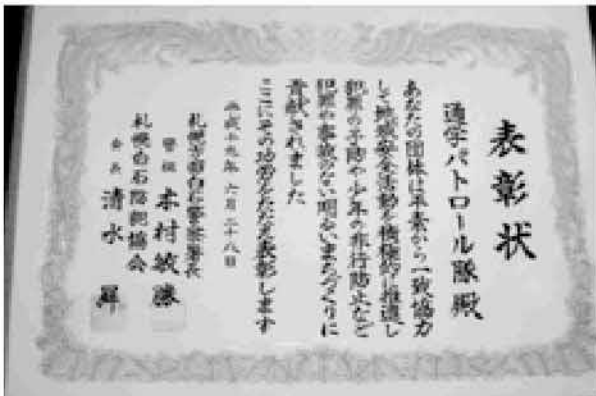 表彰状
通学パトロール隊殿
あなたの団体は平素から一致協力
して地域安全活動を積極的に推進し
犯罪の予防や少年の非行防止など
犯罪や事故のない明るいまちづくりに
貢献されました
ここにその功労をたたえ表彰します
平成十九年六月二十八日
札幌方面白石警察署長
警視 木村敏勝
札幌白石防犯協会
会長 清水